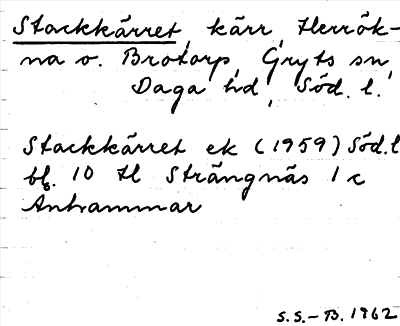 Stackkärret, kärr, Herrök-
na o. Brotorp, Gryts sn,
Daga hd, Söd. l.
Stackkärret ek (1959) Söd. l
bl. 10 tl Strängnäs 1 c
Antrammar
S.S.-B. 1962